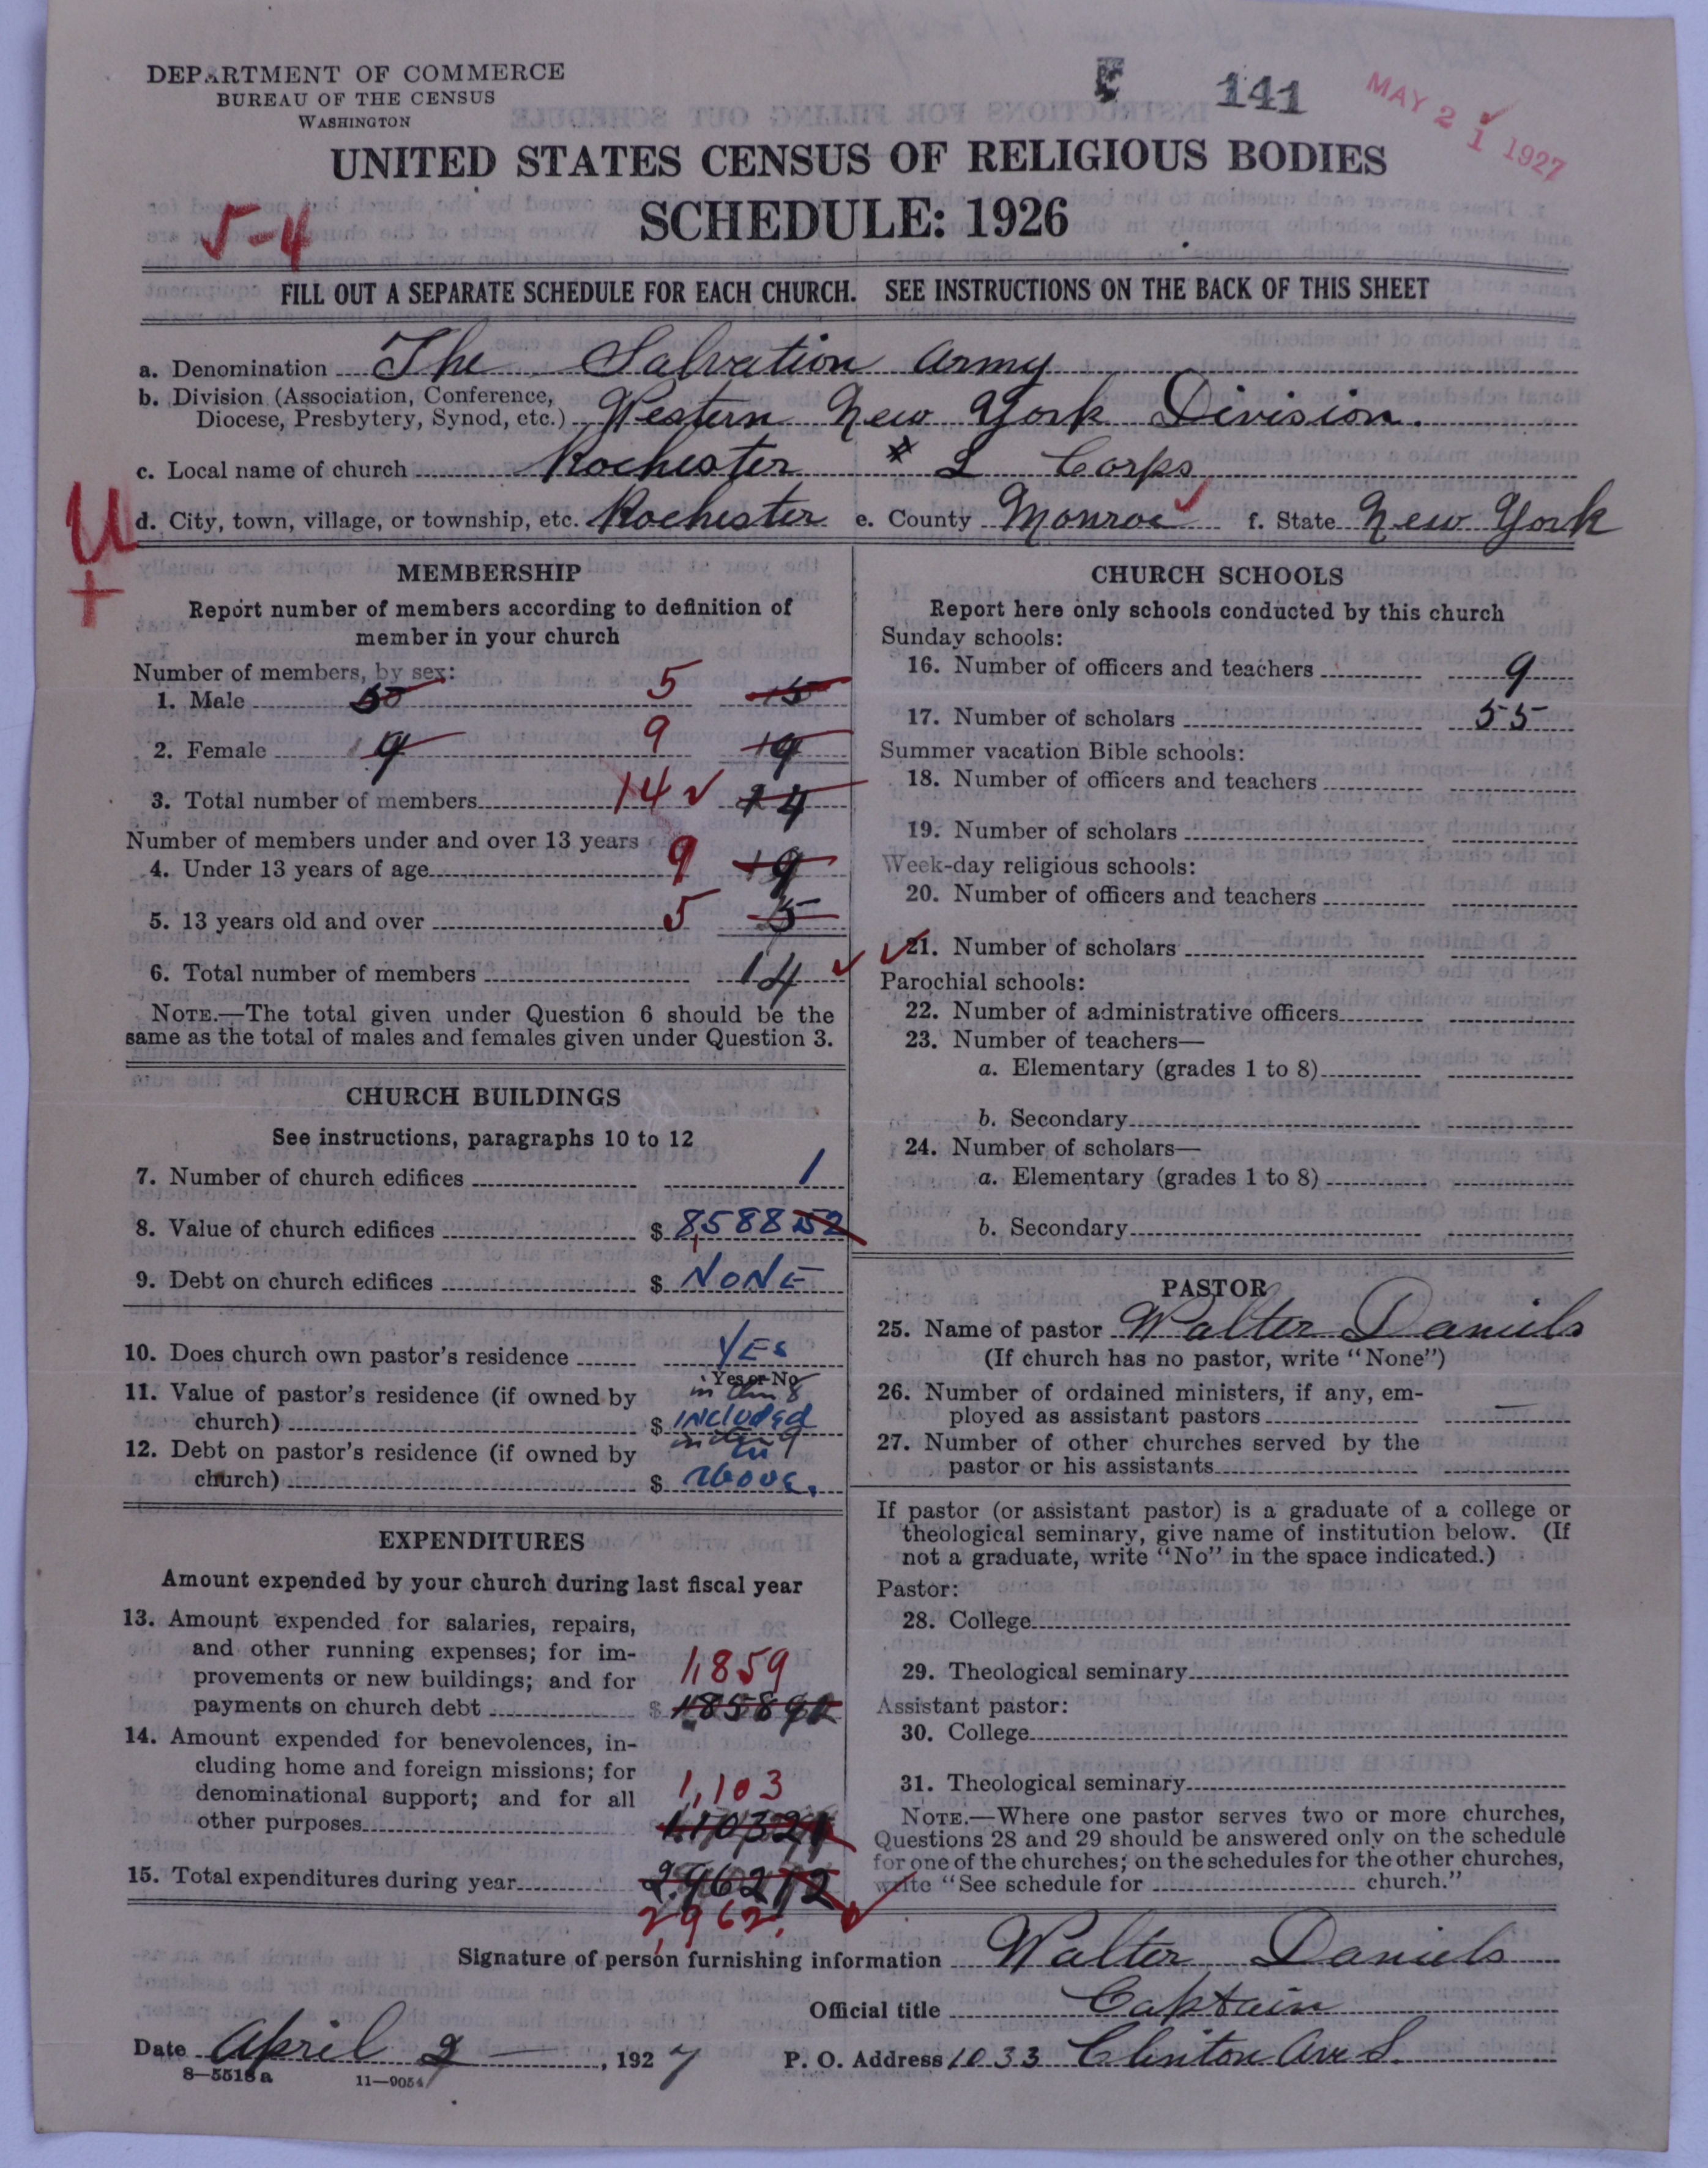 DEPARTMENT OF COMMERCE
BUREAU OF THE CENSUS
WASHINGTON
141
MAY 21 1927
UNITED STATES CENSUS OF RELIGIOUS BODIES
SCHEDULE: 1926
5-4
FILL OUT A SEPARATE SCHEDULE FOR EACH CHURCH. SEE INSTRUCTIONS ON THE BACK OF THIS SHEET
a. Denomination The Salvation Army
b. Division (Association, Conference,
Diocese, Presbytery, Synod, etc.) Western New York Division.
c. Local name of church Rochester # Corps
d. City, town, village, or township, etc. Rochester e. County Monroe f. State New York
U
+
MEMBERSHIP
Report number of members according to definition of
member in your church
Number of members, by sex:
1. Male 5
2. Female 9 9 19
3. Total number of members 14 ✓
Number of members under and over 13 years
4. Under 13 years of age 9 19
5. 13 years old and over 5 5
6. Total number of members 14 ✓
NOTE.—The total given under Question 6 should be the
same as the total of males and females given under Question 3.
CHURCH BUILDINGS
See instructions, paragraphs 10 to 12
7. Number of church edifices 1
8. Value of church edifices $ 8,588 52
9. Debt on church edifices $ NONE
10. Does church own pastor's residence YES
Yes or No
11. Value of pastor's residence (if owned by
in this 8
church) $ included
12. Debt on pastor's residence (if owned by
in
church) $ above.
EXPENDITURES
Amount expended by your church during last fiscal year
13. Amount expended for salaries, repairs,
and other running expenses; for im-
provements or new buildings; and for 1,859
payments on church debt $
14. Amount expended for benevolences, in-
cluding home and foreign missions; for
denominational support; and for all 1,103
other purposes 1103 21
15. Total expenditures during year 2962 12
2,962
CHURCH SCHOOLS
Report here only schools conducted by this church
Sunday schools:
16. Number of officers and teachers 9
17. Number of scholars 55
Summer vacation Bible schools:
18. Number of officers and teachers
19. Number of scholars
Week-day religious schools:
20. Number of officers and teachers
✓ 21. Number of scholars
Parochial schools:
22. Number of administrative officers
23. Number of teachers—
a. Elementary (grades 1 to 8)
b. Secondary
24. Number of scholars—
a. Elementary (grades 1 to 8)
b. Secondary
PASTOR
25. Name of pastor Walter Daniels
(If church has no pastor, write "None")
26. Number of ordained ministers, if any, em-
ployed as assistant pastors —
27. Number of other churches served by the
pastor or his assistants
If pastor (or assistant pastor) is a graduate of a college or
theological seminary, give name of institution below. (If
not a graduate, write "No" in the space indicated.)
Pastor:
28. College
29. Theological seminary
Assistant pastor:
30. College
31. Theological seminary
NOTE.—Where one pastor serves two or more churches,
Questions 28 and 29 should be answered only on the schedule
for one of the churches; on the schedules for the other churches,
write "See schedule for church."
Signature of person furnishing information Walter Daniels
Official title Captain
Date April 2 —, 1927 P. O. Address 1033 Clinton Ave S.
8—5518a 11—9054